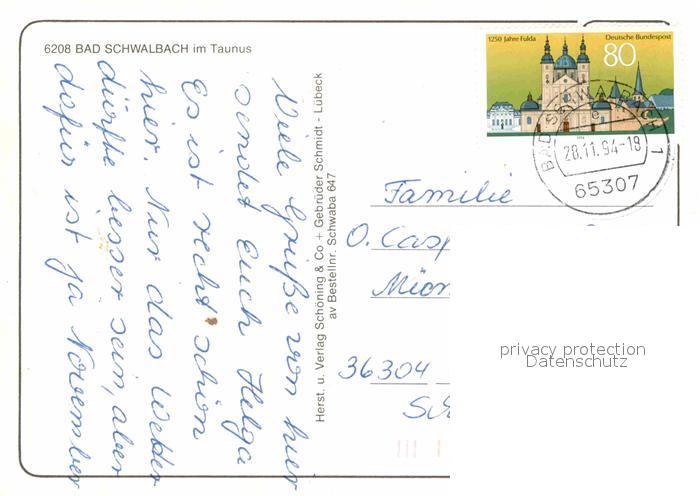 6208 BAD SCHWALBACH im Taunus
Viele Grüße von hier
sendet Euch Helga
Es ist recht schön
hier. Nur das Wetter
dürfte besser sein, aber
dafür ist ja November
Herst. u. Verlag Schöning & Co + Gebrüder Schmidt - Lübeck
av Bestellnr. Schwaba 647
1250 Jahre Fulda
Deutsche Bundespost
80
1994
BAD SCHWALBACH 1
e
28.11.94-18
65307
Familie
O. Casp
36304
privacy protection
Datenschutz